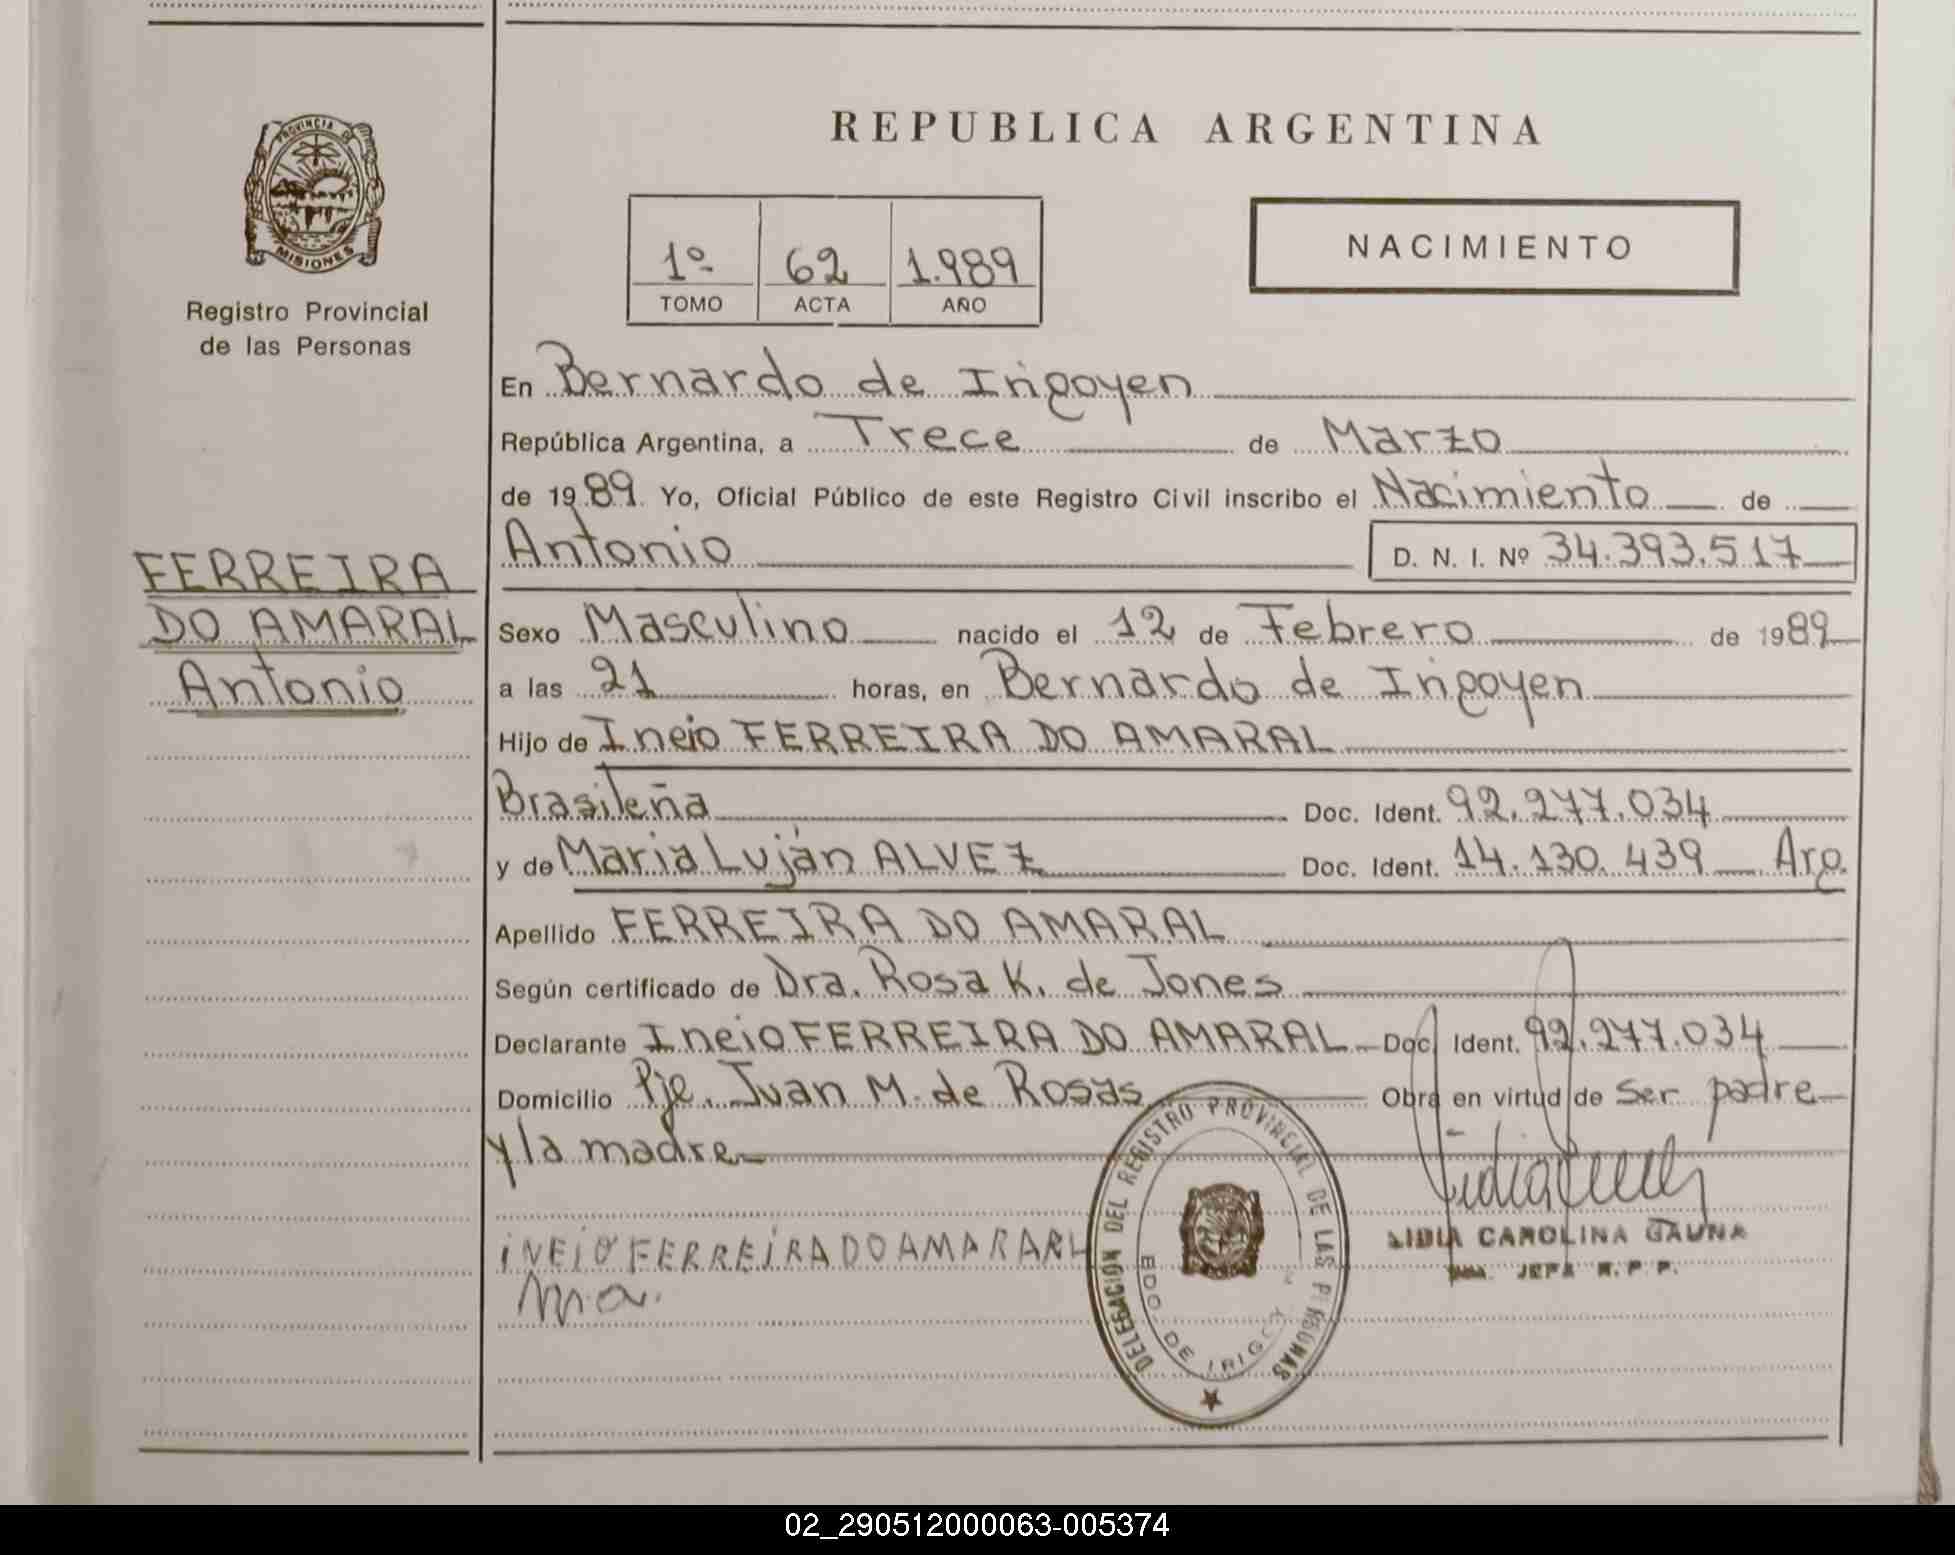 PROVINCIA DE
MISIONES
Registro Provincial
de las Personas
FERREIRA
DO AMARAL
Antonio
REPUBLICA ARGENTINA
1º 62 1.989
TOMO ACTA AÑO
NACIMIENTO
En Bernardo de Irigoyen
República Argentina, a Trece de Marzo
de 1989. Yo, Oficial Público de este Registro Civil inscribo el Nacimiento de
Antonio D. N. I. Nº 34.393.517
Sexo Masculino nacido el 12 de Febrero de 1989
a las 21 horas, en Bernardo de Irigoyen
Hijo de Ineio FERREIRA DO AMARAL
Brasileña Doc. Ident. 92.277.034
y de Maria Luján ALVEZ Doc. Ident. 14.130.439 Arg.
Apellido FERREIRA DO AMARAL
Según certificado de Dra. Rosa K. de Jones
Declarante Ineio FERREIRA DO AMARAL Doc. Ident. 92.277.034
Domicilio Pje. Juan M. de Rosas Obra en virtud de ser padre
y la madre
INEIO FERREIRA DO AMARARL
M.a.
DELEGACION DEL REGISTRO PROVINCIAL DE LAS PERSONAS
BDO. DE IRIGOYEN
LIDIA CAROLINA GAUNA
JEFA R. P. P.
02_290512000063-005374